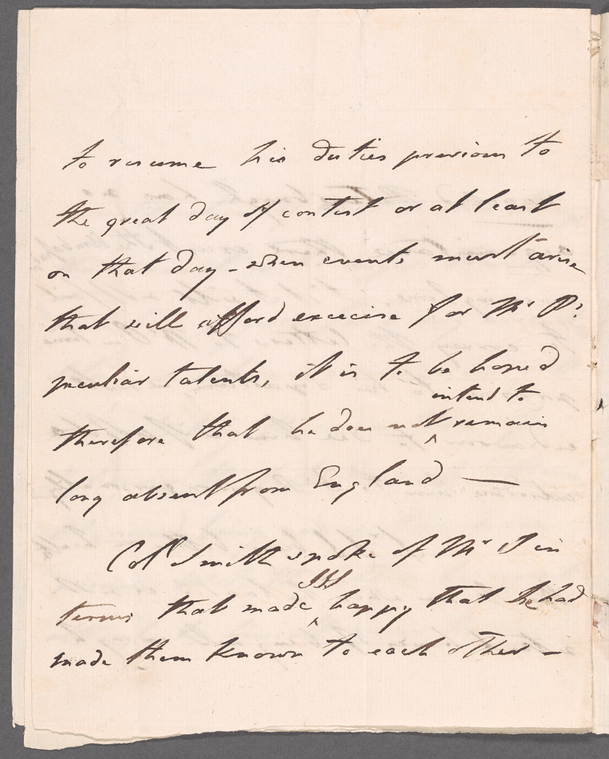 to resume his duties previous to
the great day of contest or at least
on that day - when events must arise
that will afford excecise for Mr P's
peculiar talents, it is to be hoped
intend to
therefore that he does not remain
long absent from England —
Col Smith spoke of Mr in
terms that made happy that he had
made them known to each other —